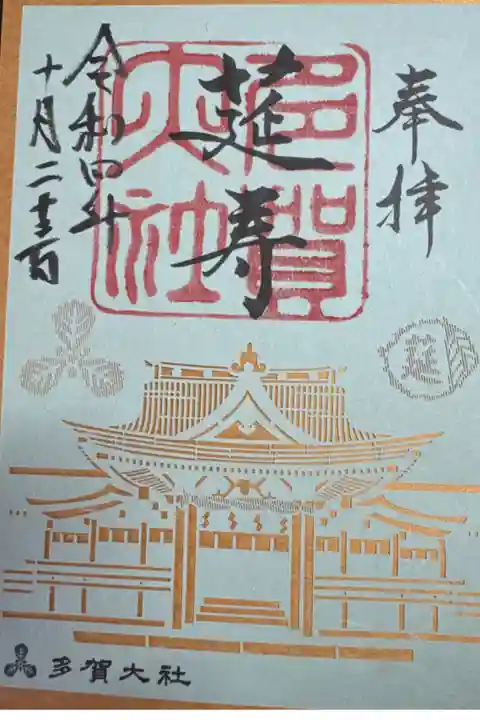 奉拝
莚寿
多賀
大社
令和四年
十月二十
莚
多賀大社